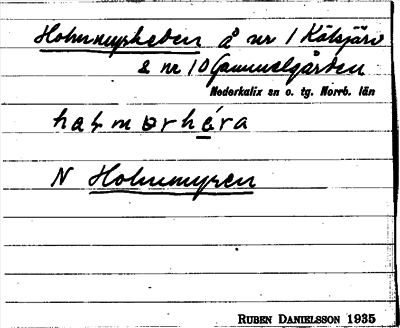 Holmmyrheden å nr 1 Kälsjärv
& nr 10 Gammelgården
Nederkalix sn o. tg. Norrb. län
N Holmmyren
RUBEN DANIELSSON 1935